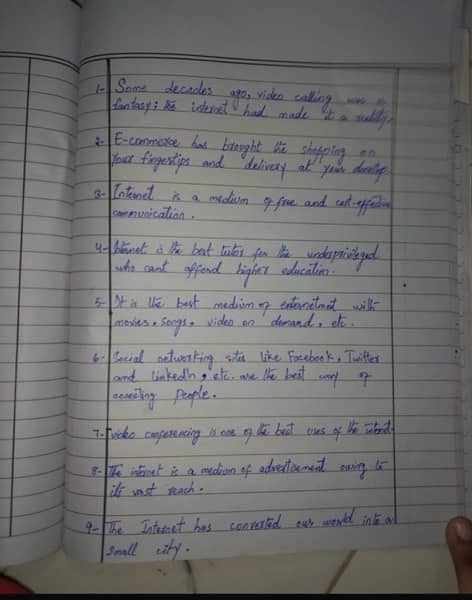 1- Some decades ago, video calling was a
fantasy; the internet had made it a reality.
2- E-commerce has brought the shopping on
your fingertips and delivery at your doorstep
3- Internet is a medium of free and cost-effective
communication.
4- Internet is the best tutor for the underprivileged
who cant afford higher education.
5- It is the best medium of entertainment with
movies, songs, video on demand, etc.
6- Social networking sites like Facebook, Twitter
and linkedIn, etc. are the best way of
connecting people.
7- video conferencing is one of the best uses of the internet.
8- The internet is a medium of advertisement owing to
its vast reach.
9- The Internet has converted our world into a
small city.